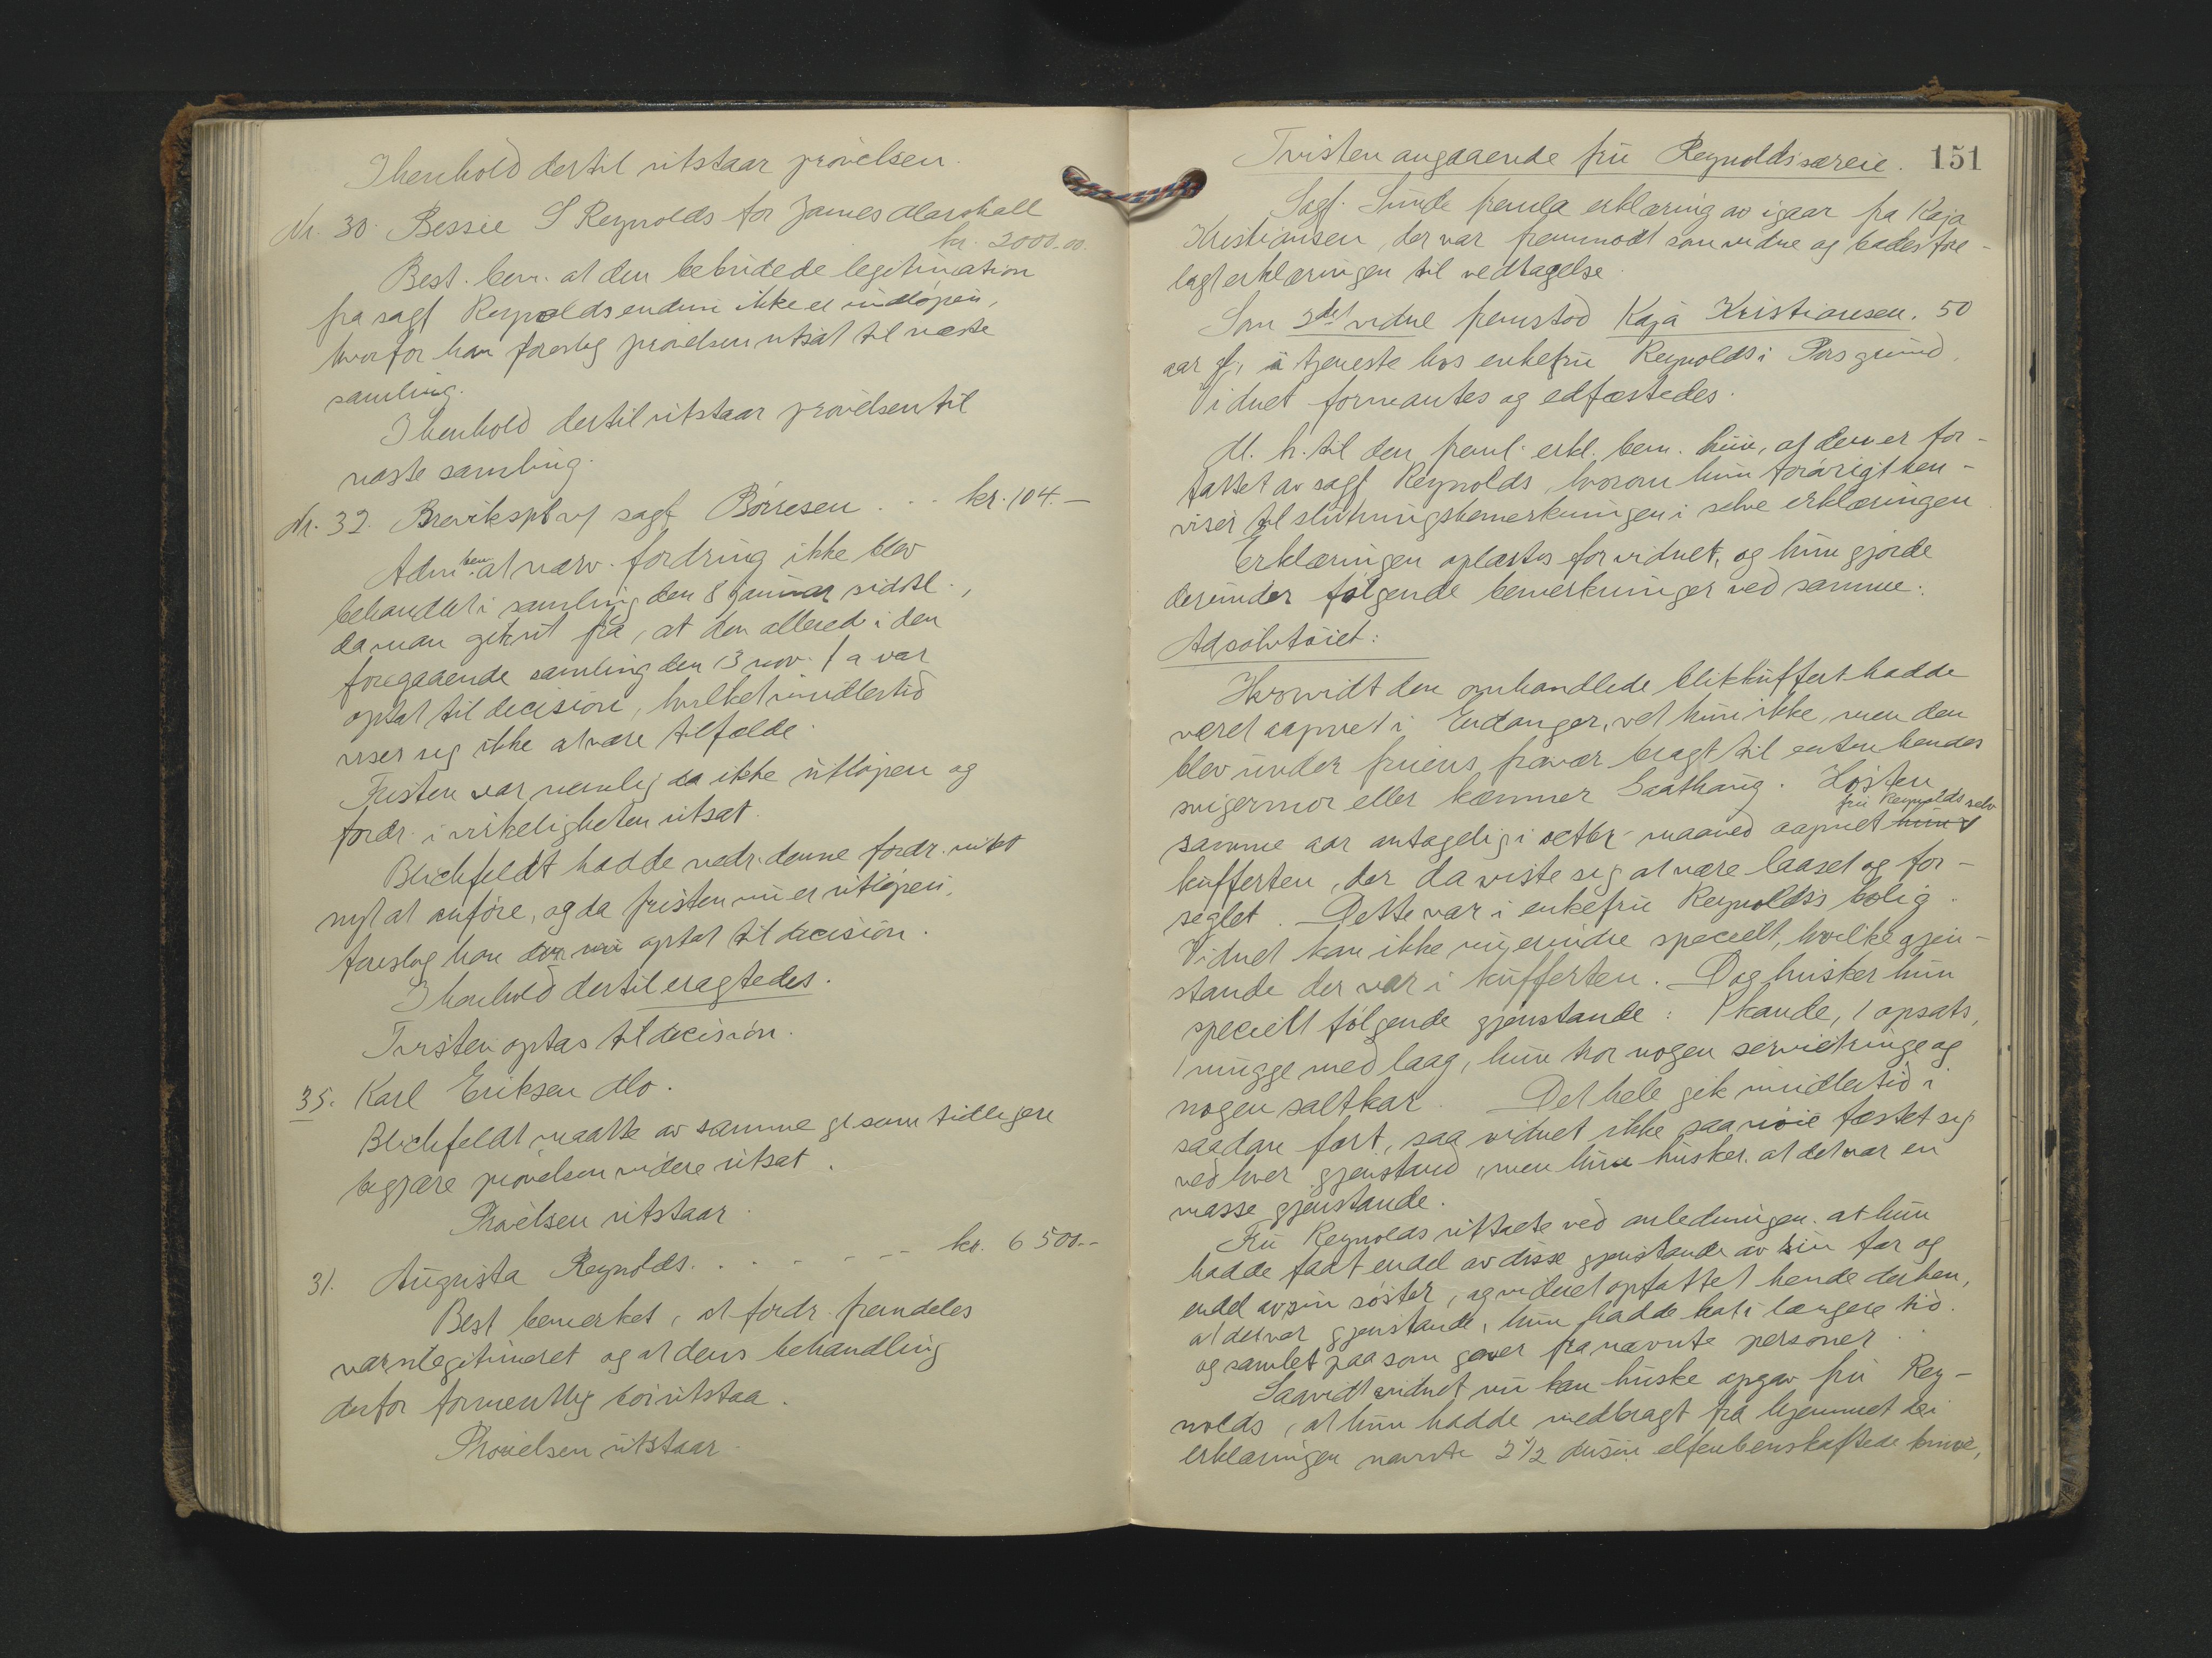 I henhold dertil utstaar prøvelsen.
Nr. 30. Bessie S Reynolds for James Marshall
kr. 2000.00.
Best. bem. at den bebudede legitimation
fra sagf Reynolds endnu ikke er indløpen,
hvorfor han foreslog prøvelsen utsat til næste
samling.
I henhold dertil utstaar prøvelsen til
næste samling.
Nr. 32. Breviksp v/ sagf Børresen . . . kr. 104.—
Adm bem. at nærv. fordring ikke blev
behandlet i samling den 8 januar sidstl.,
da man gik ut fra, at den allerede i den
foregaaende samling den 13 nov. f a var
optat til decision, hvilket imidlertid
viser sig ikke at være tilfælde.
Fristen var nemlig da ikke utløpen og
fordr. i virkeligheten utsat.
Blichfeldt hadde vedr. denne fordr. intet
nyt at anføre, og da fristen nu er utløpen,
foreslog han den nu optat til decision.
I henhold dertil eragtedes.
Tvisten optas til decision.
35. Karl Eriksen Mo.
Blichfeldt maatte av samme gr som tidligere
begjære prøvelsen videre utsat.
Prøvelsen utstaar.
31. Augusta Reynolds. . . . . . kr. 6500.--
Best bemerket, at fordr. fremdeles
var ulegitimeret og at dens behandling
derfor formentlig bør utstaa.
Prøvelsen utstaar.
Tvisten angaaende fru Reynolds særeie. 151
Sagf. Sunde fremla erklæring av igaar fra Kaja
Kristiansen, der var fremmødt som vidne og bades fore-
lagt erklæringen til vedtagelse.
Som 3det vidne fremstod Kaja Kristiansen. 50
aar g, i tjeneste hos enkefru Reynolds i Porsgrund.
Vidnet formantes og edfæstedes.
M. h. til den freml. erkl. bem. hun, at den er for-
fattet av sagf Reynolds, hvorom hun forøvrigt hen-
viser til slutningsbemerkningen i selve erklæringen
Erklæringen oplæstes for vidnet, og hun gjorde
derunder følgende bemerkninger ved samme:
Ad sølvtøiet:
Hvorvidt den omhandlede blikkuffert hadde
været aapnet i Endanger, vet hun ikke, men den
blev under fruens fravær bragt til enten hendes
svigermor eller kæmner Saathaug. Høsten
samme aar antagelig i octbr. maaned aapnet fru Reynolds selv
kufferten, der da viste sig at være laaset og for-
seglet. Dette var i enkefru Reynolds's bolig.
Vidnet kan ikke nu erindre specielt, hvilke gjen-
stande der var i kufferten. Dog husker hun
specielt følgende gjenstande: 1 kande, 1 opsats,
1 mugge med laag, hun tror nogen servietringe og
nogen saltkar. Det hele gik imidlertid i
saadan fart, saa vidnet ikke saa nøie fæstet sig
ved hver gjenstand, men hun husker at det var en
masse gjenstande.
Fru Reynolds uttalte ved anledningen at hun
hadde faat endel av disse gjenstande av sin far og
endel av sin søster, og vidnet opfattet hende derhen,
at det var gjenstande, hun hadde hat i længere tid.
og samlet paa som gaver fra nævnte personer.
Saavidt vidnet nu kan huske opgav fru Rey-
nolds, at hun hadde medbragt fra hjemmet de i
erklæringen nævnte 2 1/2 dusin elfenbenskaftede knive,